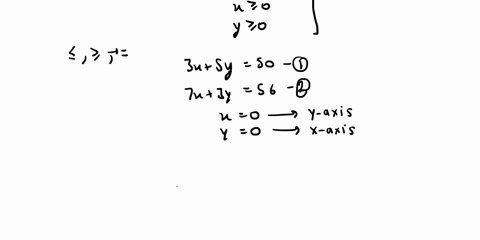 x ≥ 0
y ≥ 0
≤ , ≥ , → =
3x + 5y = 50 - ①
7x + 3y = 56 - ②
x = 0 → y-axis
y = 0 → x-axis